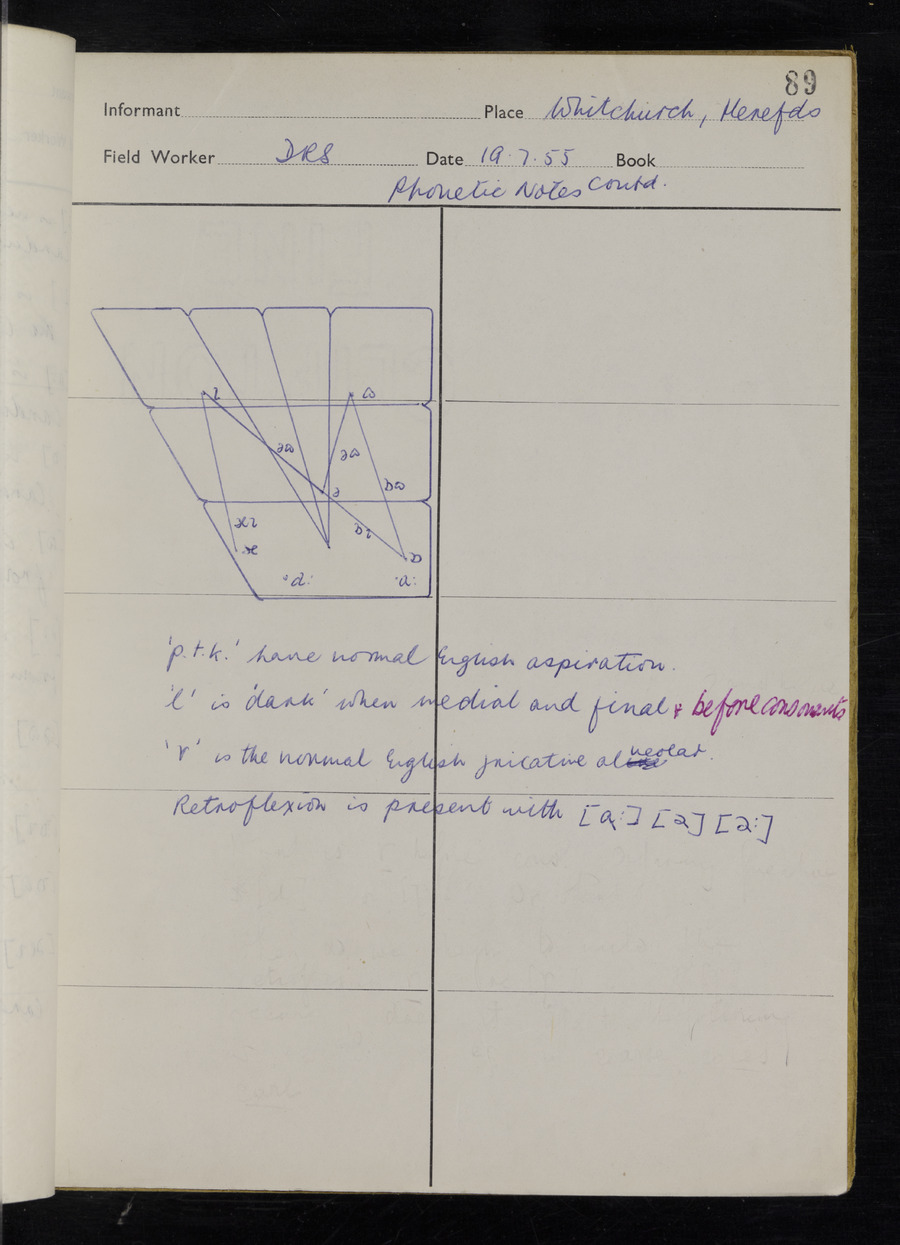 89
Informant Place Whitchurch, Herefds
Field Worker DRS Date 19.7.55 Book
Phonetic Notes Contd.
ɪ ɷ
əɷ əɷ
ə ɒɷ
æɪ ɒɪ
æ ɒ
a: ɑ:
'p.t.k.' have normal English aspiration.
'l' is 'dark' when medial and final & before consonants
'r' is the normal English fricative alveolar.
Retroflexion is present with [ɑ:] [ə] [ə:]